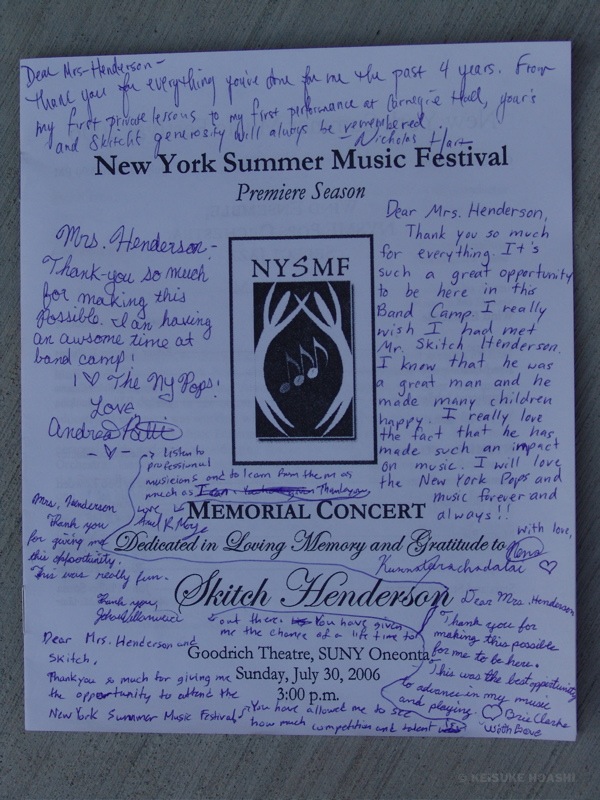 Dear Mrs. Henderson -
Thank you for everything you've done for me the past 4 years. From
my first private lessons to my first performance at Carnegie Hall, your's
and Skitch's generosity will always be remembered.
Nicholas Hart
New York Summer Music Festival
Premiere Season
Mrs. Henderson -
Thank-you so much
for making this
Possible. I an having
an awsome time at
band camp!
I ♡ The Ny Pops!
Love,
Andrea
- ♡ -
NYSMF
Dear Mrs. Henderson,
Thank you so much
for everything. It's
such a great opportunity
to be here in this
Band Camp. I really
wish I had met
Mr. Skitch Henderson.
I know that he was
a great man and he
made many children
happy. I really love
the fact that he has
made such an impact
on music. I will love
the New York Pops and
music forever and
always!!
with love,
♡
→ Listen to
professional
musicians and to learn from them as
much as I can. Thankyou
Love
MEMORIAL CONCERT
Dedicated in Loving Memory and Gratitude to
Skitch Henderson
Mrs. Henderson
Thank you
for giving me
this opportunity.
This was really fun.
Thank you,
Dear Mrs. Henderson and
Skitch,
Thankyou so much for giving me
the opportunity to attend the
New York Summer Music Festival.
You have allowed me to see
how much competition and talent is
out there. You have given
me the chance of a life time to
Goodrich Theatre, SUNY Oneonta
Sunday, July 30, 2006
3:00 p.m.
Dear Mrs. Henderson
Thank you for
making this possible
for me to be here.
This was the best opportunity
to advance in my music
and playing. ♡ Bria Clarke
With Love
© KEISUKE HOASHI